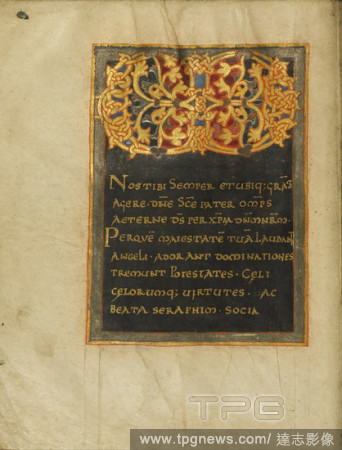 Nos tibi semper et ubiq; gr̄as
agere · dn̄e sc̄e pater omp̄s
aeterne d̄s per xp̄m dn̄m nr̄m ·
Per quē maiestatē tuā laudant
angeli · adorant dominationes
tremunt potestates · celi
celorumq; uirtutes · ac
beata seraphim · socia
TPG
www.tpgnews.com/ 達志影像